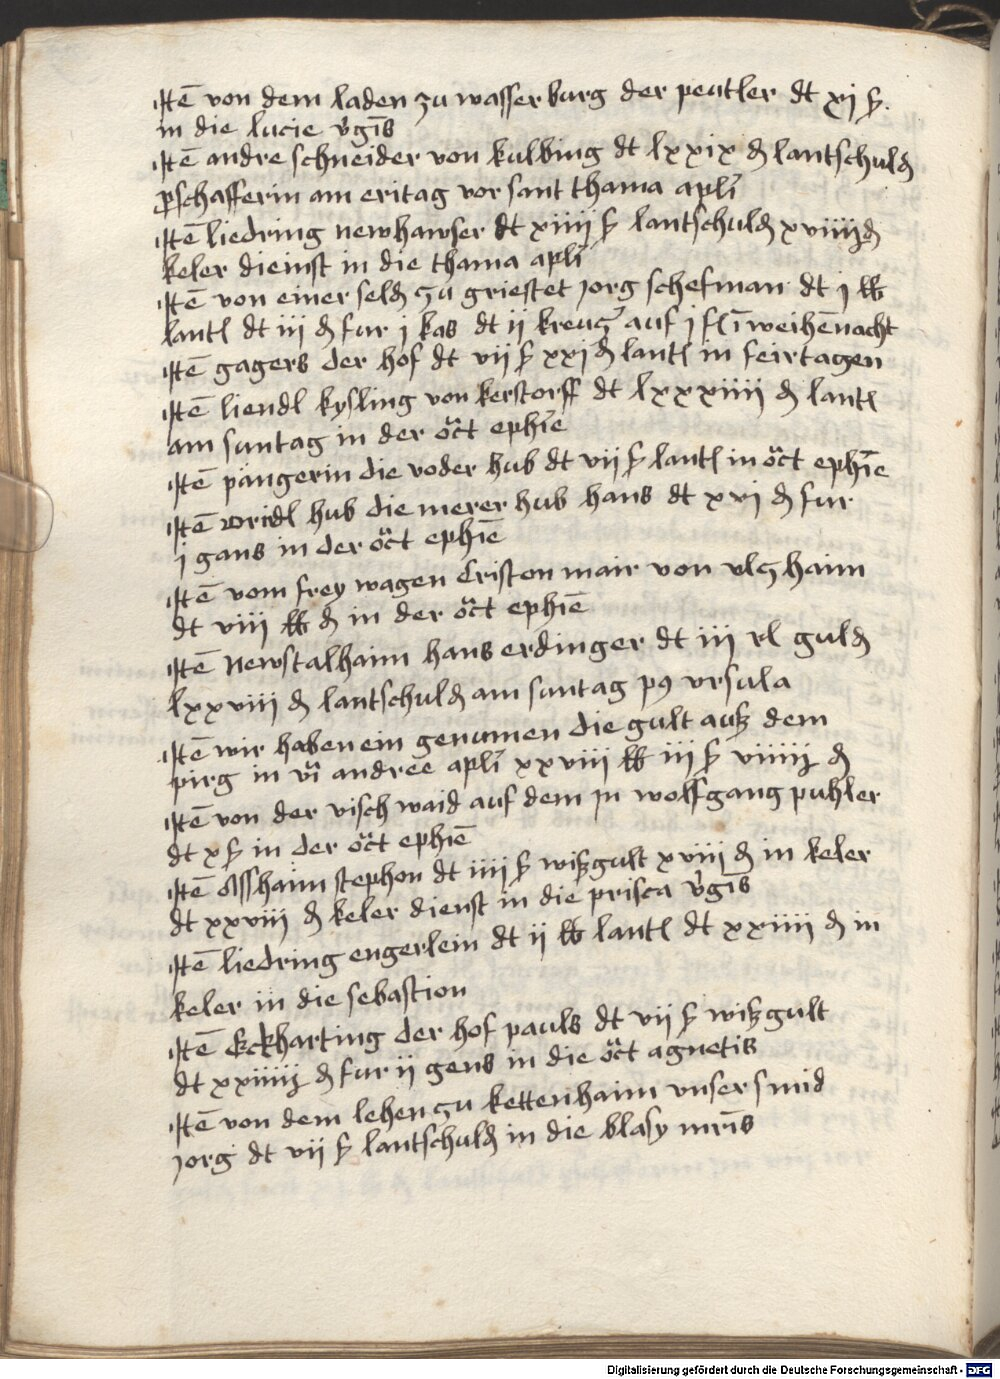 Itē von dem laden zu wasserburg der peutler dt xj ß
in die lucie v̉gīs
Itē andre schneider von kulbing dt lxxix ₰ lantschuld
pschafferin am eritag vor sant thama apli
Itē liedring newhawser dt xiiij ß lantschuld xviiij ₰
keler dieinst in die thama apli
Itē von einer seld zu griestet jorg schefman dt j lb
lantl dt iij ₰ fur j kas dt ij kreuz auf j weihēnacht
Itē gagers der hof dt vij ß xxj ₰ lantl in feirtagen
Itē liendl kysling von kerstorff dt lxxxiiij ₰ lantl
am suntag in der oct ephīe
Itē pängerin die voder hub dt vij ß lantl in oct ephīe
Itē hub die merer hub hans dt xvj ₰ fur
j gans in der oct ephīe
Itē vom frey wagen Criston mair von vlzhaim
dt viij lb ₰ in der oct ephīe
Itē Newstalhaim hans erdinger dt iij rl guld
lxxviij ₰ lantschuld am suntag p9 vrsula
Itē wir haben ein genumen die gult auß dem
pirg in vi andree apli xxviij lb iij ß viiij ₰
Itē von der visch waid auf dem jn wolfgang puhler
dt x ß in der oct ephīe
Itē Olsshaim stephon dt iiij ß wißgult xviij ₰ in keler
dt xxviij ₰ keler dienst in die prisca v̉gīs
Itē liedring engerlein dt ij lb lantl dt xxiiij ₰ in
keler in die sebastion
Itē Eckharting der hof pauls dt vij ß wißgult
dt xxiiij ₰ fur ij gens in die oct agnetis
Itē von dem lehen zu kettenhaim vnser smid
jorg dt vij ß lantschuld in die blasy mr̄is
Digitalisierung gefördert durch die Deutsche Forschungsgemeinschaft - DFG